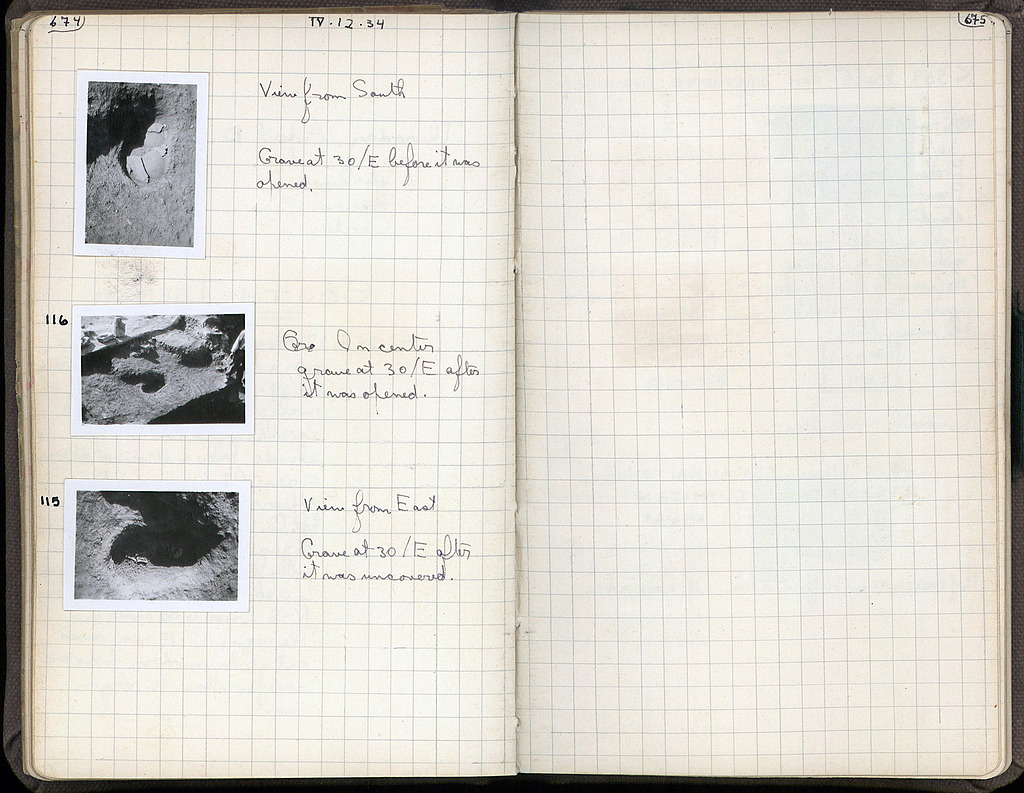 674
IV·12·34
675
View from South
Grave at 30/E before it was
opened.
116
Gra In center
grave at 30/E after
it was opened.
115
View from East
Grave at 30/E after
it was uncovered.